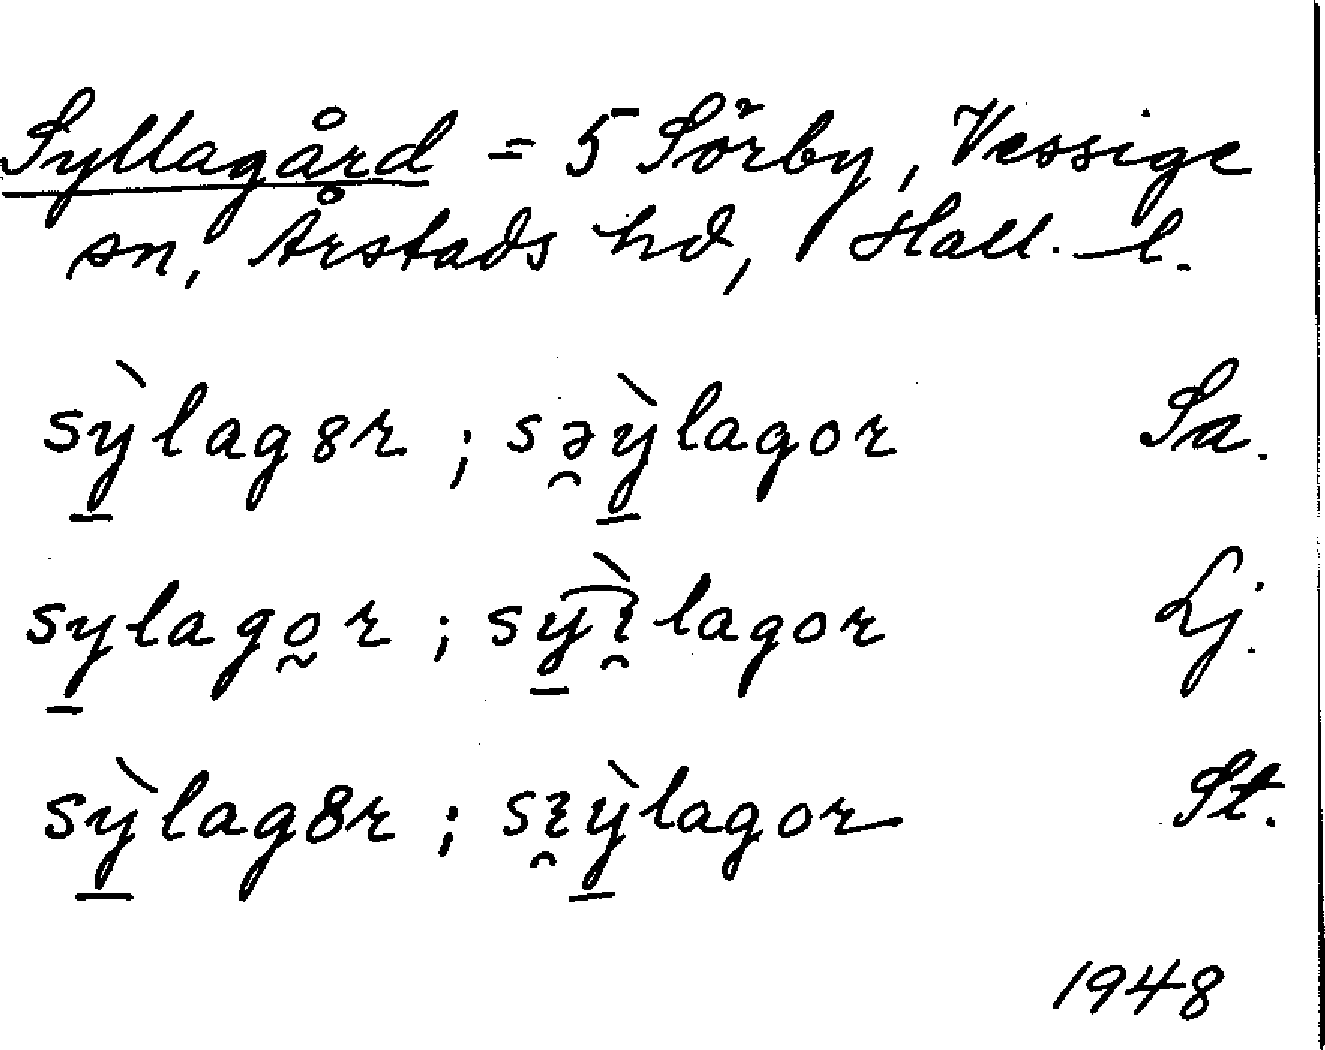 Syllagård = 5 Sörby, Vessige
sn, Årstads hd, Hall. l.
sỳ̱lag8r ; sə̯ỳ̱lagor Sa.
sy̱lago̰r ; sy̱͡ɪ̯̀lagor Lj.
sỳ̱lag8r ; sɪ̯ỳ̱lagor St.
1948